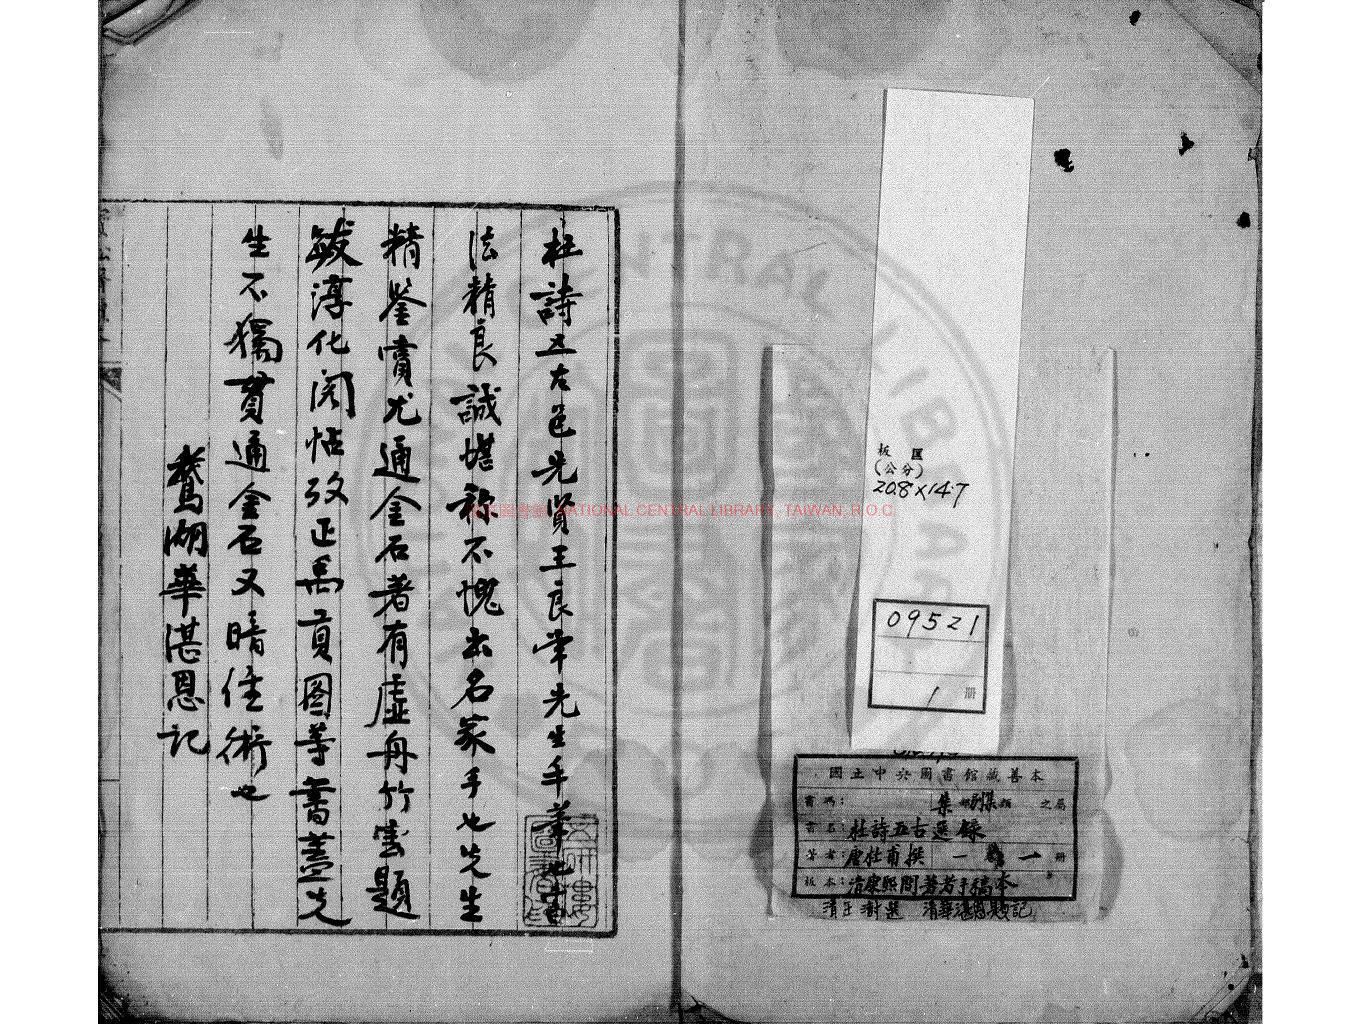 板 匡
(公分)
20.8×14.7
09521
1 册
國立中央圖書館藏善本
書碼： 集部別集類 之屬
書名：杜詩五古選錄
著者：唐杜甫撰 一卷 一册
板本：清康熙間著者手稿本
清王澍選 清華湛恩題記
杜詩五古邑先賢王良常先生手筆也書
法精良誠堪称不愧出名家手也先生
精鉴賞尤通金石著有虛舟竹雲題
跋淳化閣帖攷正禹貢图等書蓋先
生不獨貫通金石又暗佳術也
鵞湖華湛恩記
NATIONAL CENTRAL LIBRARY, TAIWAN, R.O.C